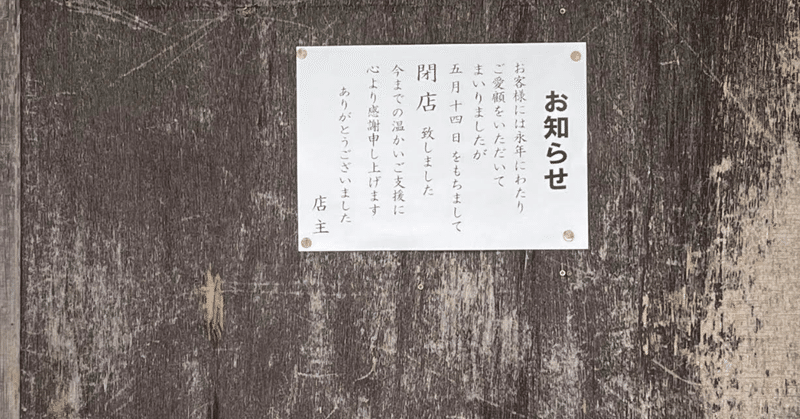 お知らせ
お客様には永年にわたり
ご愛顧をいただいて
まいりましたが
五月十四日をもちまして
閉店 致しました
今までの温かいご支援に
心より感謝申し上げます
ありがとうございました
店主